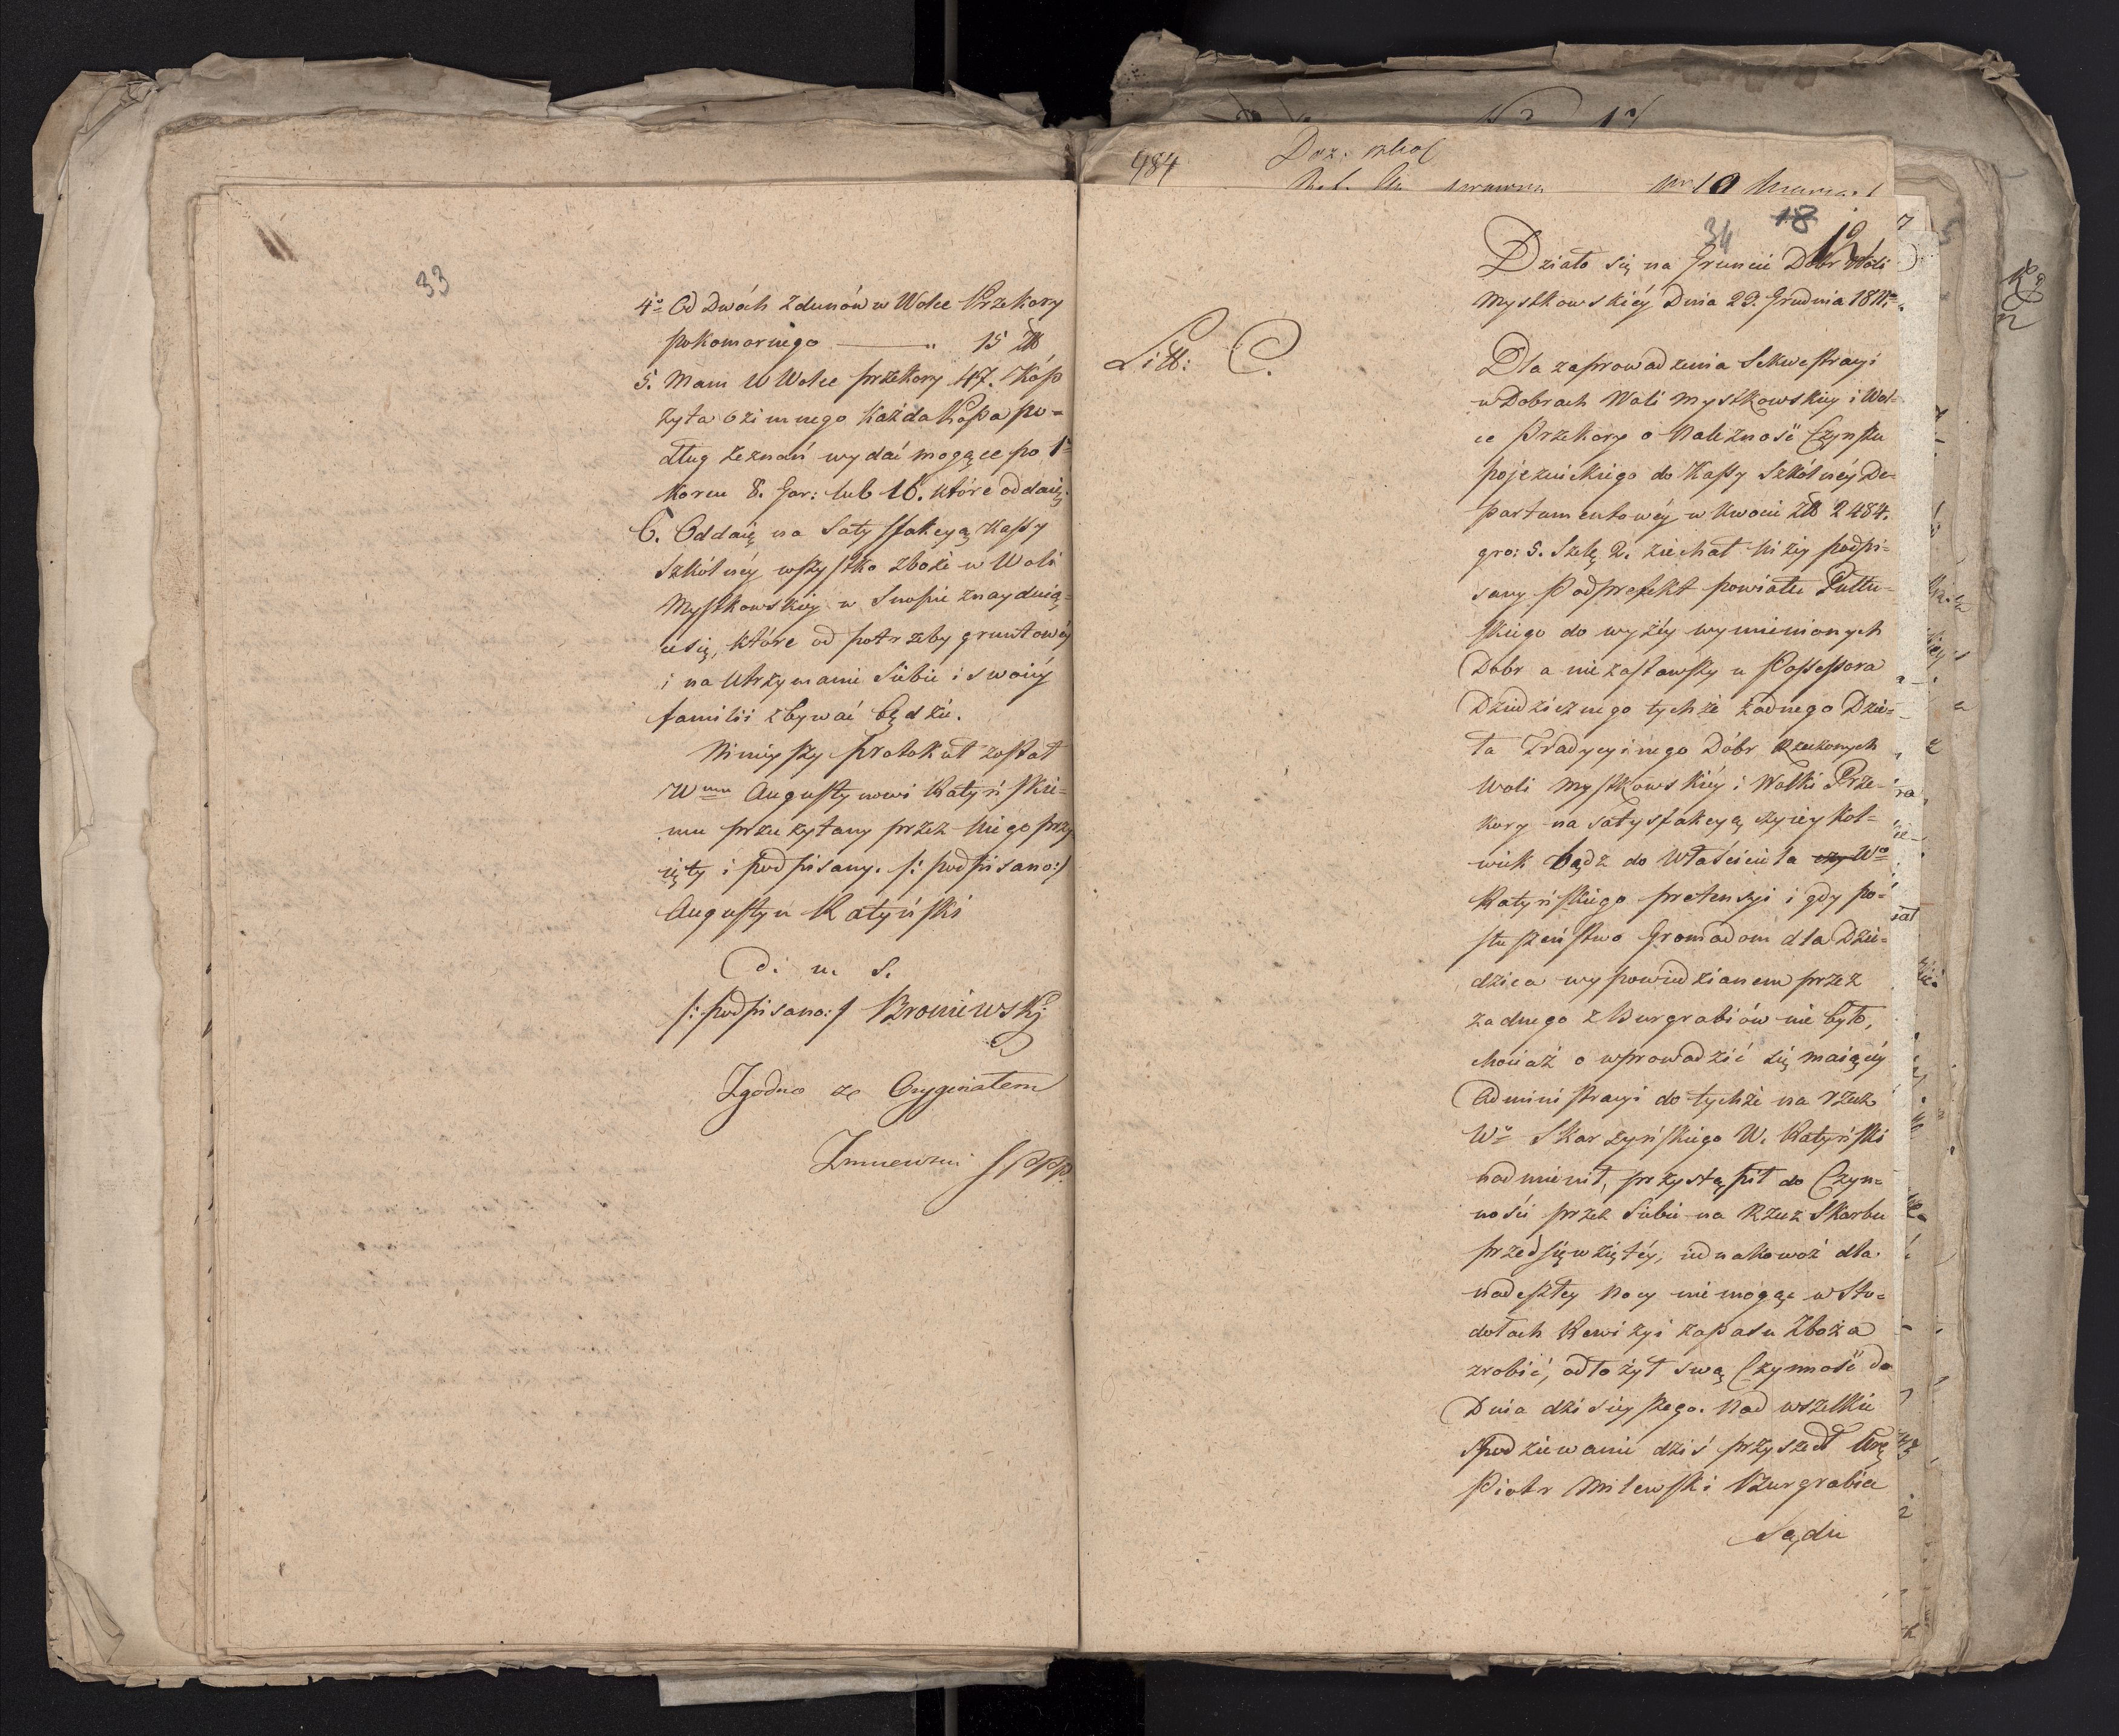 33
4º Od Dwóch Zdunów w Wolce Przekory
pokomornego 15 Zł
5. Mam w Wolce przekory 47. Kóp
żyta ozimnego każda Kopa po=
dług zeznań wydać mogące po 1m
korcu 8. Gar: lub 16. które oddaię.
6. Oddaię na Satysfakcyą Kassy
Szkólnéy wszystko zboże w Woli
Mystkowskiéy w Snopie znayduią=
ce się, które od potrzeby gruntowéy
i na utrzymanie Siebie i swoiéy
familii zbywać będzie.
Ninieyszy protokuł został
Wmu Augustynowi Katyńskie=
mu przeczytany przez Niego przy
ięty i podpisany. /: podpisano:/
Augustyn Katyński
d. u. S.
/: podpisano:/ Broniewski
Zgodno ze Oryginałem
SPPP.
484
Doz: szkol
34 18 12
Działo się na Gruncie Dóbr Woli
Mystkowskiéy Dnia 29. Grudnia 1811.
Litt: C.
Dla zaprowadzenia Sekwestracyi
w Dobrach Woli Mystkowskiey i Wol=
ce Przekory o Należność Czynszu
pojezuickiego do Kassy Szkólnéy De=
partamentowéy w Kwocie Zł 2484.
gro: 5. Szelę. 2. ziechał niżey podpi=
sany Podprefekt powiatu Pułtu=
skiego do wyżéy wymienionych
Dóbr a nie zastawszy u Possessora
Dziedzicznego tychże żadnego Dzie=
ła Tradycyinego Dóbr Rzeczonych
Woli Mystkowskiéy i Wolki Prze=
kory na satysfakcyą czyiey kol=
wiek bądz do Właściciela czy Wo
Katyńskiego pretensyi i gdy po=
słuszeństwo Gromadom dla Dzie=
dzica wypowiedzianem przez
żadnego z Burgrabiów nie było,
chociaż o wprowadzić się maiącéy
Administracyi do tychże na rzecz
Wo Skarzyńskiego W. Katyński
nadmienił, przystąpił do Czyn=
ności przez Siebie na Rzecz Skarbu
przedsięwziętéy, iednakowoż dla
nadeszłey Nocy nie mogąc w Sto=
dołach Rewizyi zapasu Zboża
zrobić, odłożył swą Czynność do
Dnia dzisieyszego. Nad wszelkie
Spodziewanie dziś przyszedł Urę
Piotr Milewski Burgrabia
Sądu